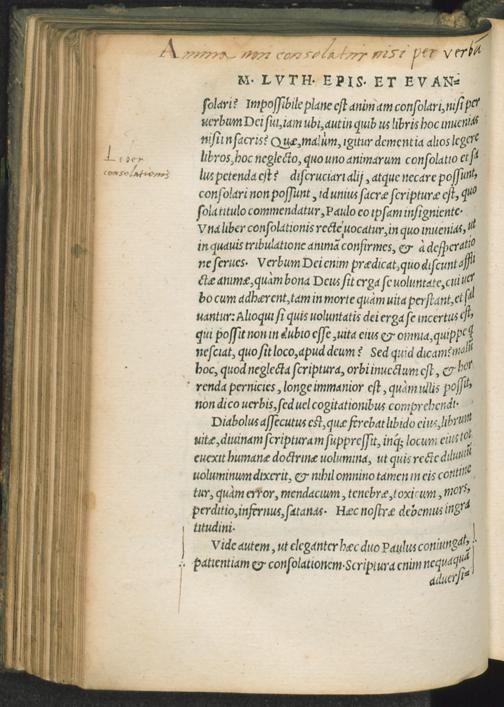 Anima non consolatur nisi per verbū
M. LVTH. EPIS. ET EVAN=
solari? Impossibile plane est animam consolari, nisi per
verbum Dei sui, iam ubi, aut in quibus libris hoc inuenias
nisi in sacris? Quæ, malùm, igitur dementia alios legere
libros, hoc neglecto, quo uno animarum consolatio et sa
lus petenda est? discruciari alij, atque necare possunt,
consolari non possunt, id unius sacræ scripturæ est, quo
sola titulo commendatur, Paulo eo ipsam insigniente.
Vna liber consolationis rectè uocatur, in quo inuenias, ut
in quauis tribulatione animā confirmes, & à desperatio
ne serues. Verbum Dei enim prædicat, quo discunt affli
ctæ animæ, quàm bona Deus sit erga se uoluntate, cui ver
bo cum adhærent, tam in morte quàm uita perstant, et sal
uantur: Alioqui si quis uoluntatis dei erga se incertus est,
qui possit non in dubio esse, uita eius & omnia, quippe q
nesciat, quo sit loco, apud deum? Sed quid dicam? malū
hoc, quod neglecta scriptura, orbi inuectum est, & hor
renda pernicies, longe immanior est, quàm ullis possit,
non dico verbis, sed vel cogitationibus comprehendi.
Diabolus assecutus est, quæ ferebat libido eius, librum
uitæ, diuinam scripturam suppressit, inq; locum eius tot
euexit humanæ doctrinæ uolumina, ut quis recte diluuiū
uoluminum dixerit, & nihil omnino tamen in eis contine
tur, quàm error, mendacium, tenebræ, toxicum, mors,
perditio, infernus, satanas. Hæc nostræ debemus ingra
titudini.
Vide autem, ut eleganter hæc duo Paulus coniungat,
patientiam & consolationem. Scriptura enim nequaquā
aduersi=
Liber
consolationis